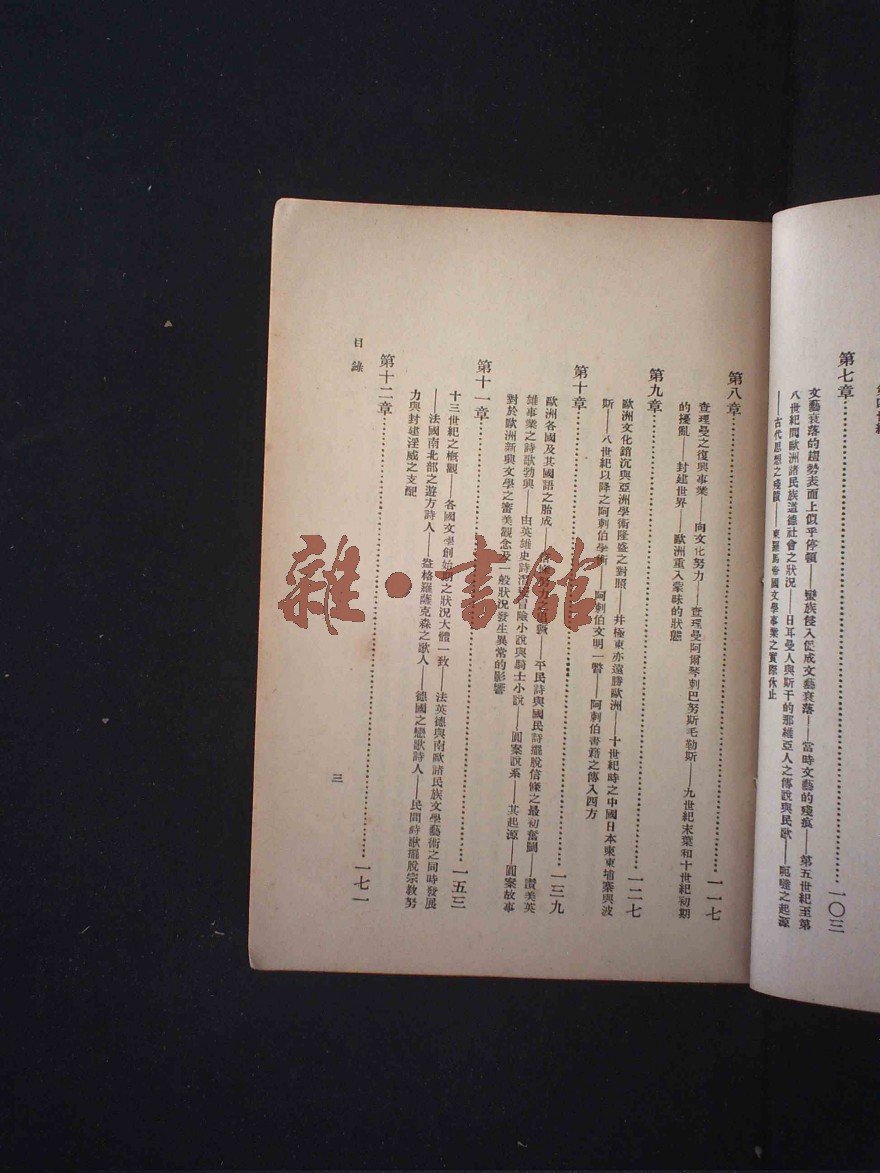 第七章……一〇三
文藝衰落的趨勢表面上似乎停頓——蠻族侵入促成文藝衰落——當時文藝的殘痕——第五世紀至第
八世紀間歐洲諸民族道德社會之狀況——日耳曼人與斯干的那維亞人之傳說與民歌——之起源
——古代思想之殘蹟——東羅馬帝國文學事業之實際休止
第八章……一一七
查理曼之復興事業——向文化努力——查理曼阿爾琴刺巴努斯毛勒斯——九世紀末葉和十世紀初期
的擾亂——封建世界——歐洲重入蒙昧的狀態
第九章……一二七
歐洲文化銷沉與亞洲學術隆盛之對照——井極東亦遠勝歐洲——十世紀時之中國日本柬東埔寨與波
斯——八世紀以降之阿剌伯學術——阿剌伯文明一瞥——阿剌伯書籍之傳入西方
第十章……一三九
歐洲各國及其國語之胎成——平民詩與國民詩擺脫信條之最初奮鬭——讚美英
雄事業之詩歌勃興——由英雄史詩冒險小說與騎士小說——圓案說系——其起源——圓案故事
對於歐洲新興文學之審美觀念及一般狀況發生異常的影響
第十一章……一五三
十三世紀之概觀——各國文學創始期之狀況大體一致——法英德與南歐諸民族文學藝術之同時發展
——法國南北部之遊方詩人——盎格羅薩克森之歌人——德國之戀歌詩人——民間詩歌擺脫宗教努
力與封建淫威之支配
第十二章……一七一
目錄
三
雜·書館